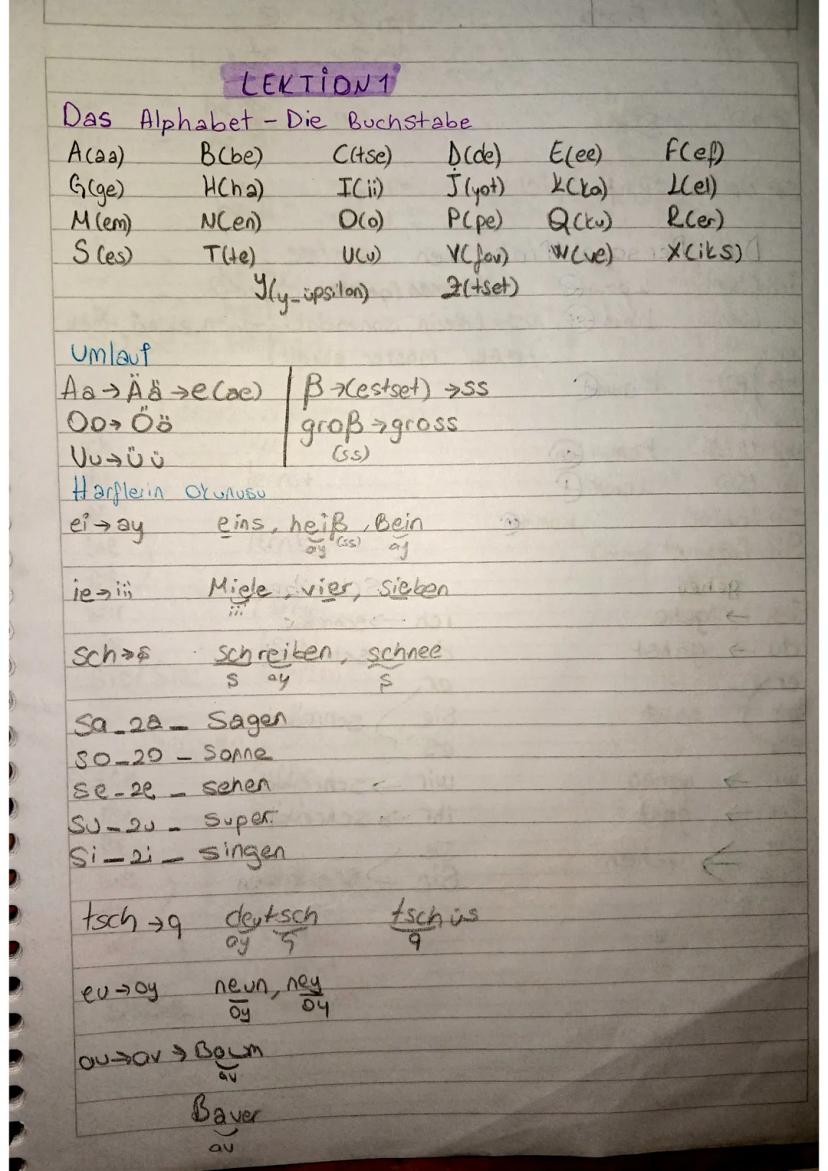 LEKTİON 1
Das Alphabet - Die Buchstabe
A(aa) B(be) C(tse) D(de) E(ee) F(ef)
G(ge) H(ha) I(ii) J(yot) K(ka) L(el)
M(em) N(en) O(o) P(pe) Q(ku) R(er)
S(es) T(te) U(u) V(fau) W(ve) X(iks)
Y(y-üpsilon) Z(tset)
Umlauf
Aa→Ää→e(ae) ß→(estset)→ss
Oo→Öö groß→gross
Uu→Üü (ss)
Harflerin Okunusu
ei→ay eins, heiß, Bein
ay (ss) ay
ie→iii Miele, vier, sieben
iii
sch→ş schreiben, schnee
ş ay ş
Sa_za_ Sagen
SO_ZO - Sonne
Se-ze - sehen
Su-zu- super
Si-zi- singen
tsch→ç deutsch tschüs
ay ç ç
eu→oy neun, ney
oy oy
au→av→Baum
av
Bauer
au